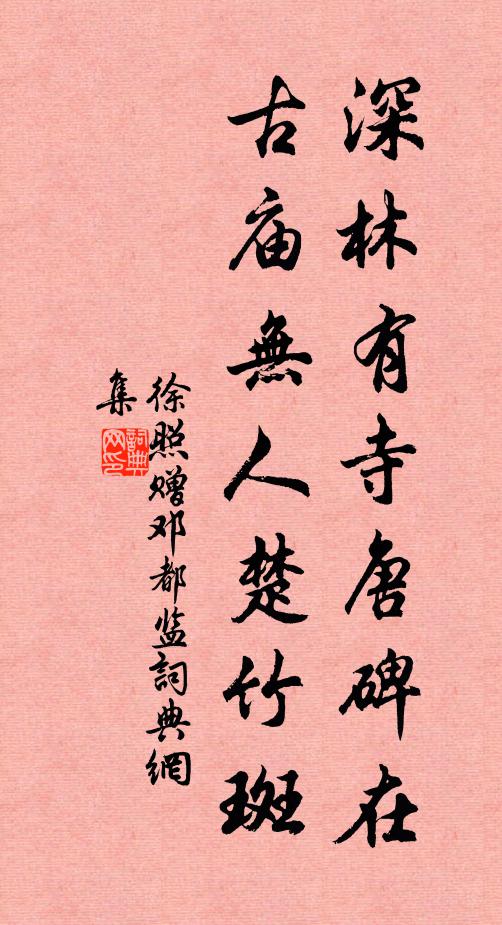 深林有寺唐碑在
古庙無人楚竹斑
徐照赠邓都监詞典網
集
詞典网印